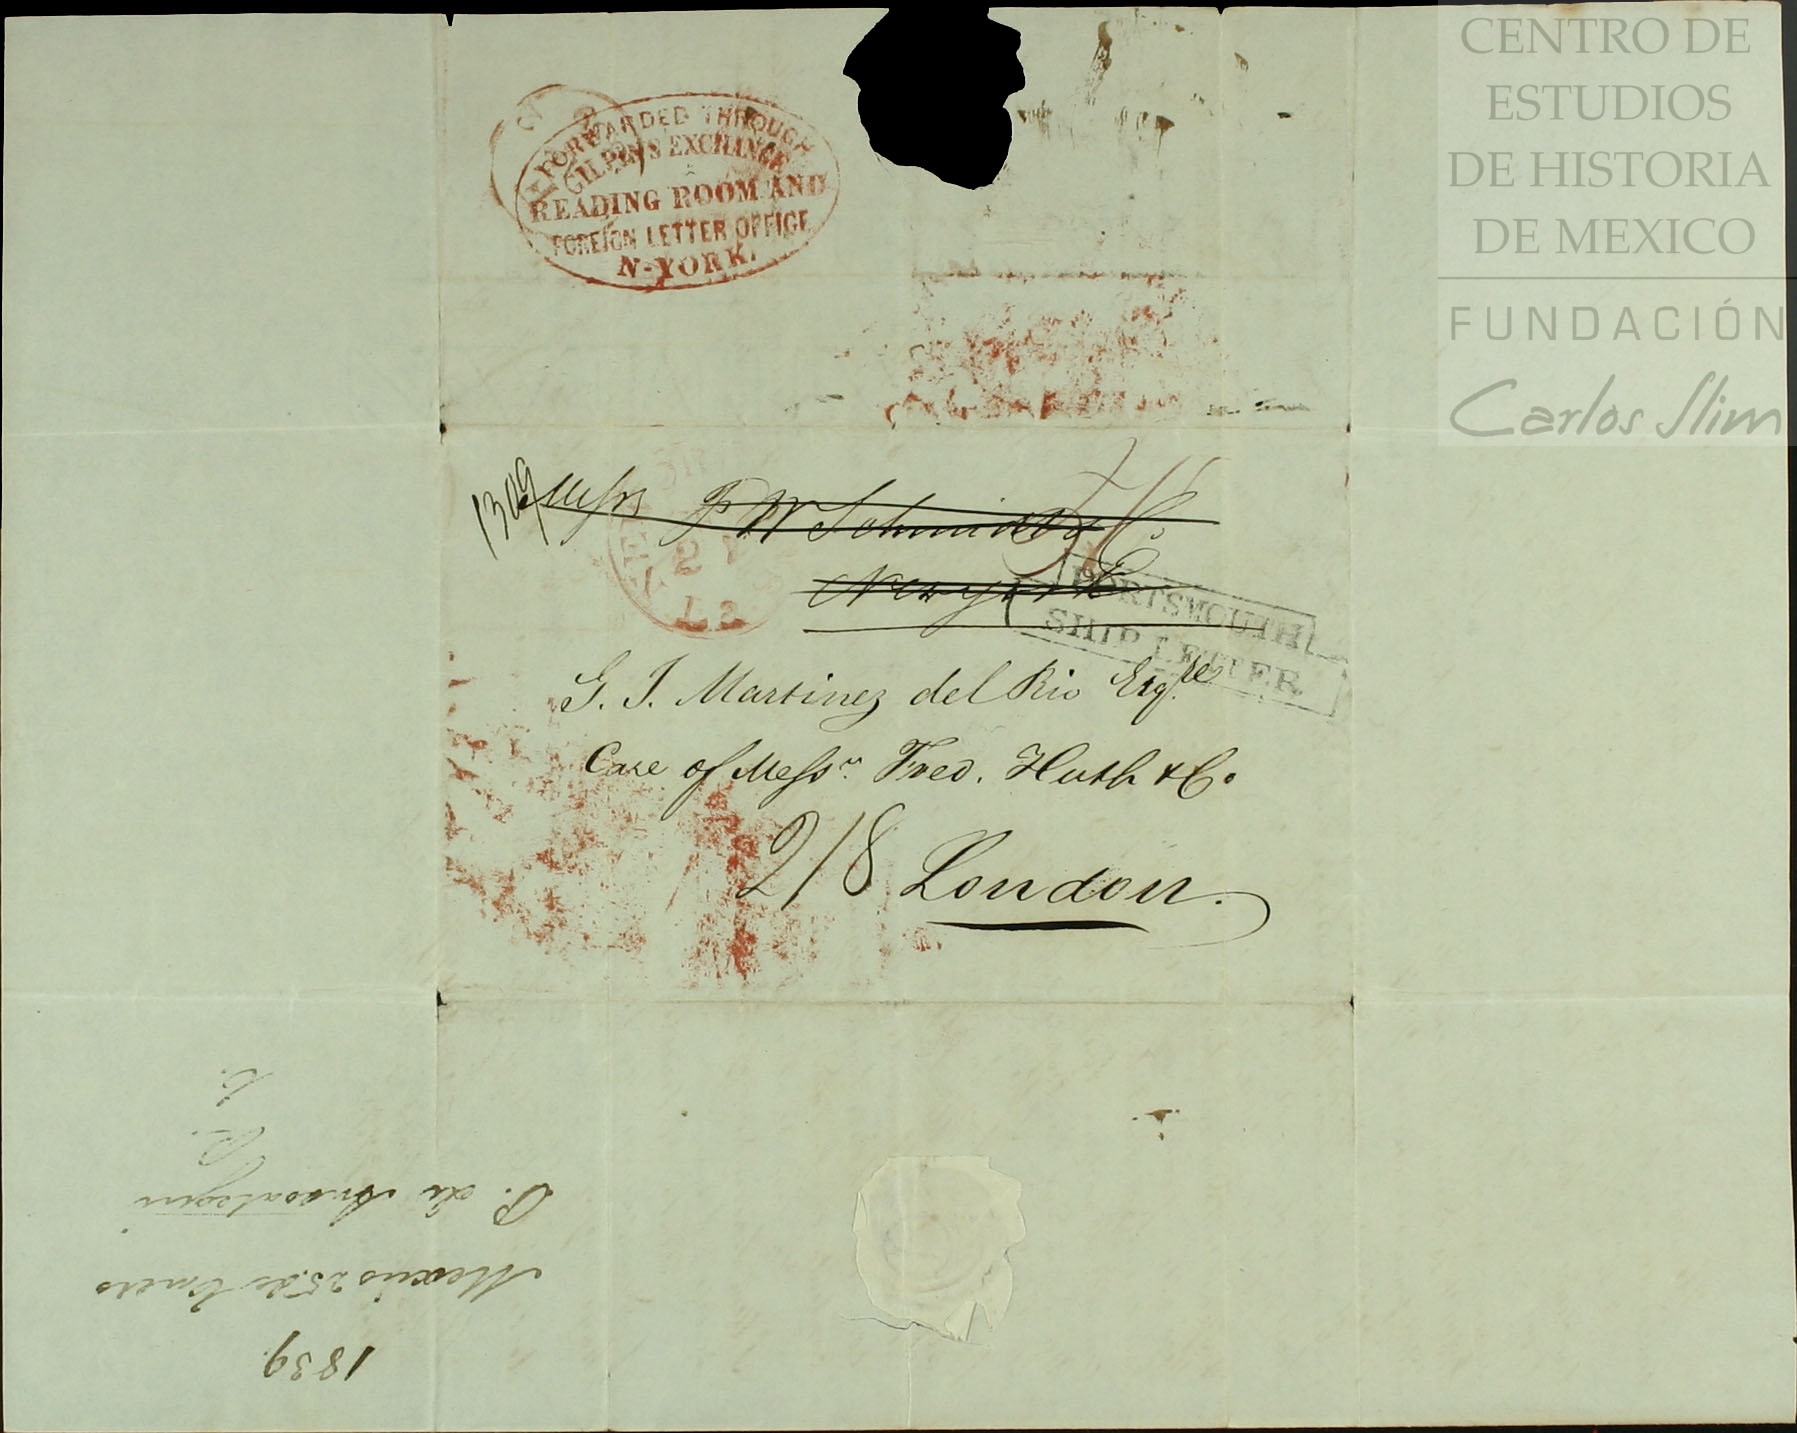 CENTRO DE
ESTUDIOS
DE HISTORIA
DE MEXICO
FUNDACIÓN
Carlos Slim
FORWARDED THROUGH
GILPIN'S EXCHANGE
READING ROOM AND
FOREIGN LETTER OFFICE
N-YORK.
Messrs P W Schmidt & Co.
New york
PORTSMOUTH
SHIP LETTER
G. J. Martinez del Rio Esqre
Care of Messrs. Fred. Huth & Co
2/8 London.
1839
Mexico 25 de Enero
P. de Ansoategui
R.